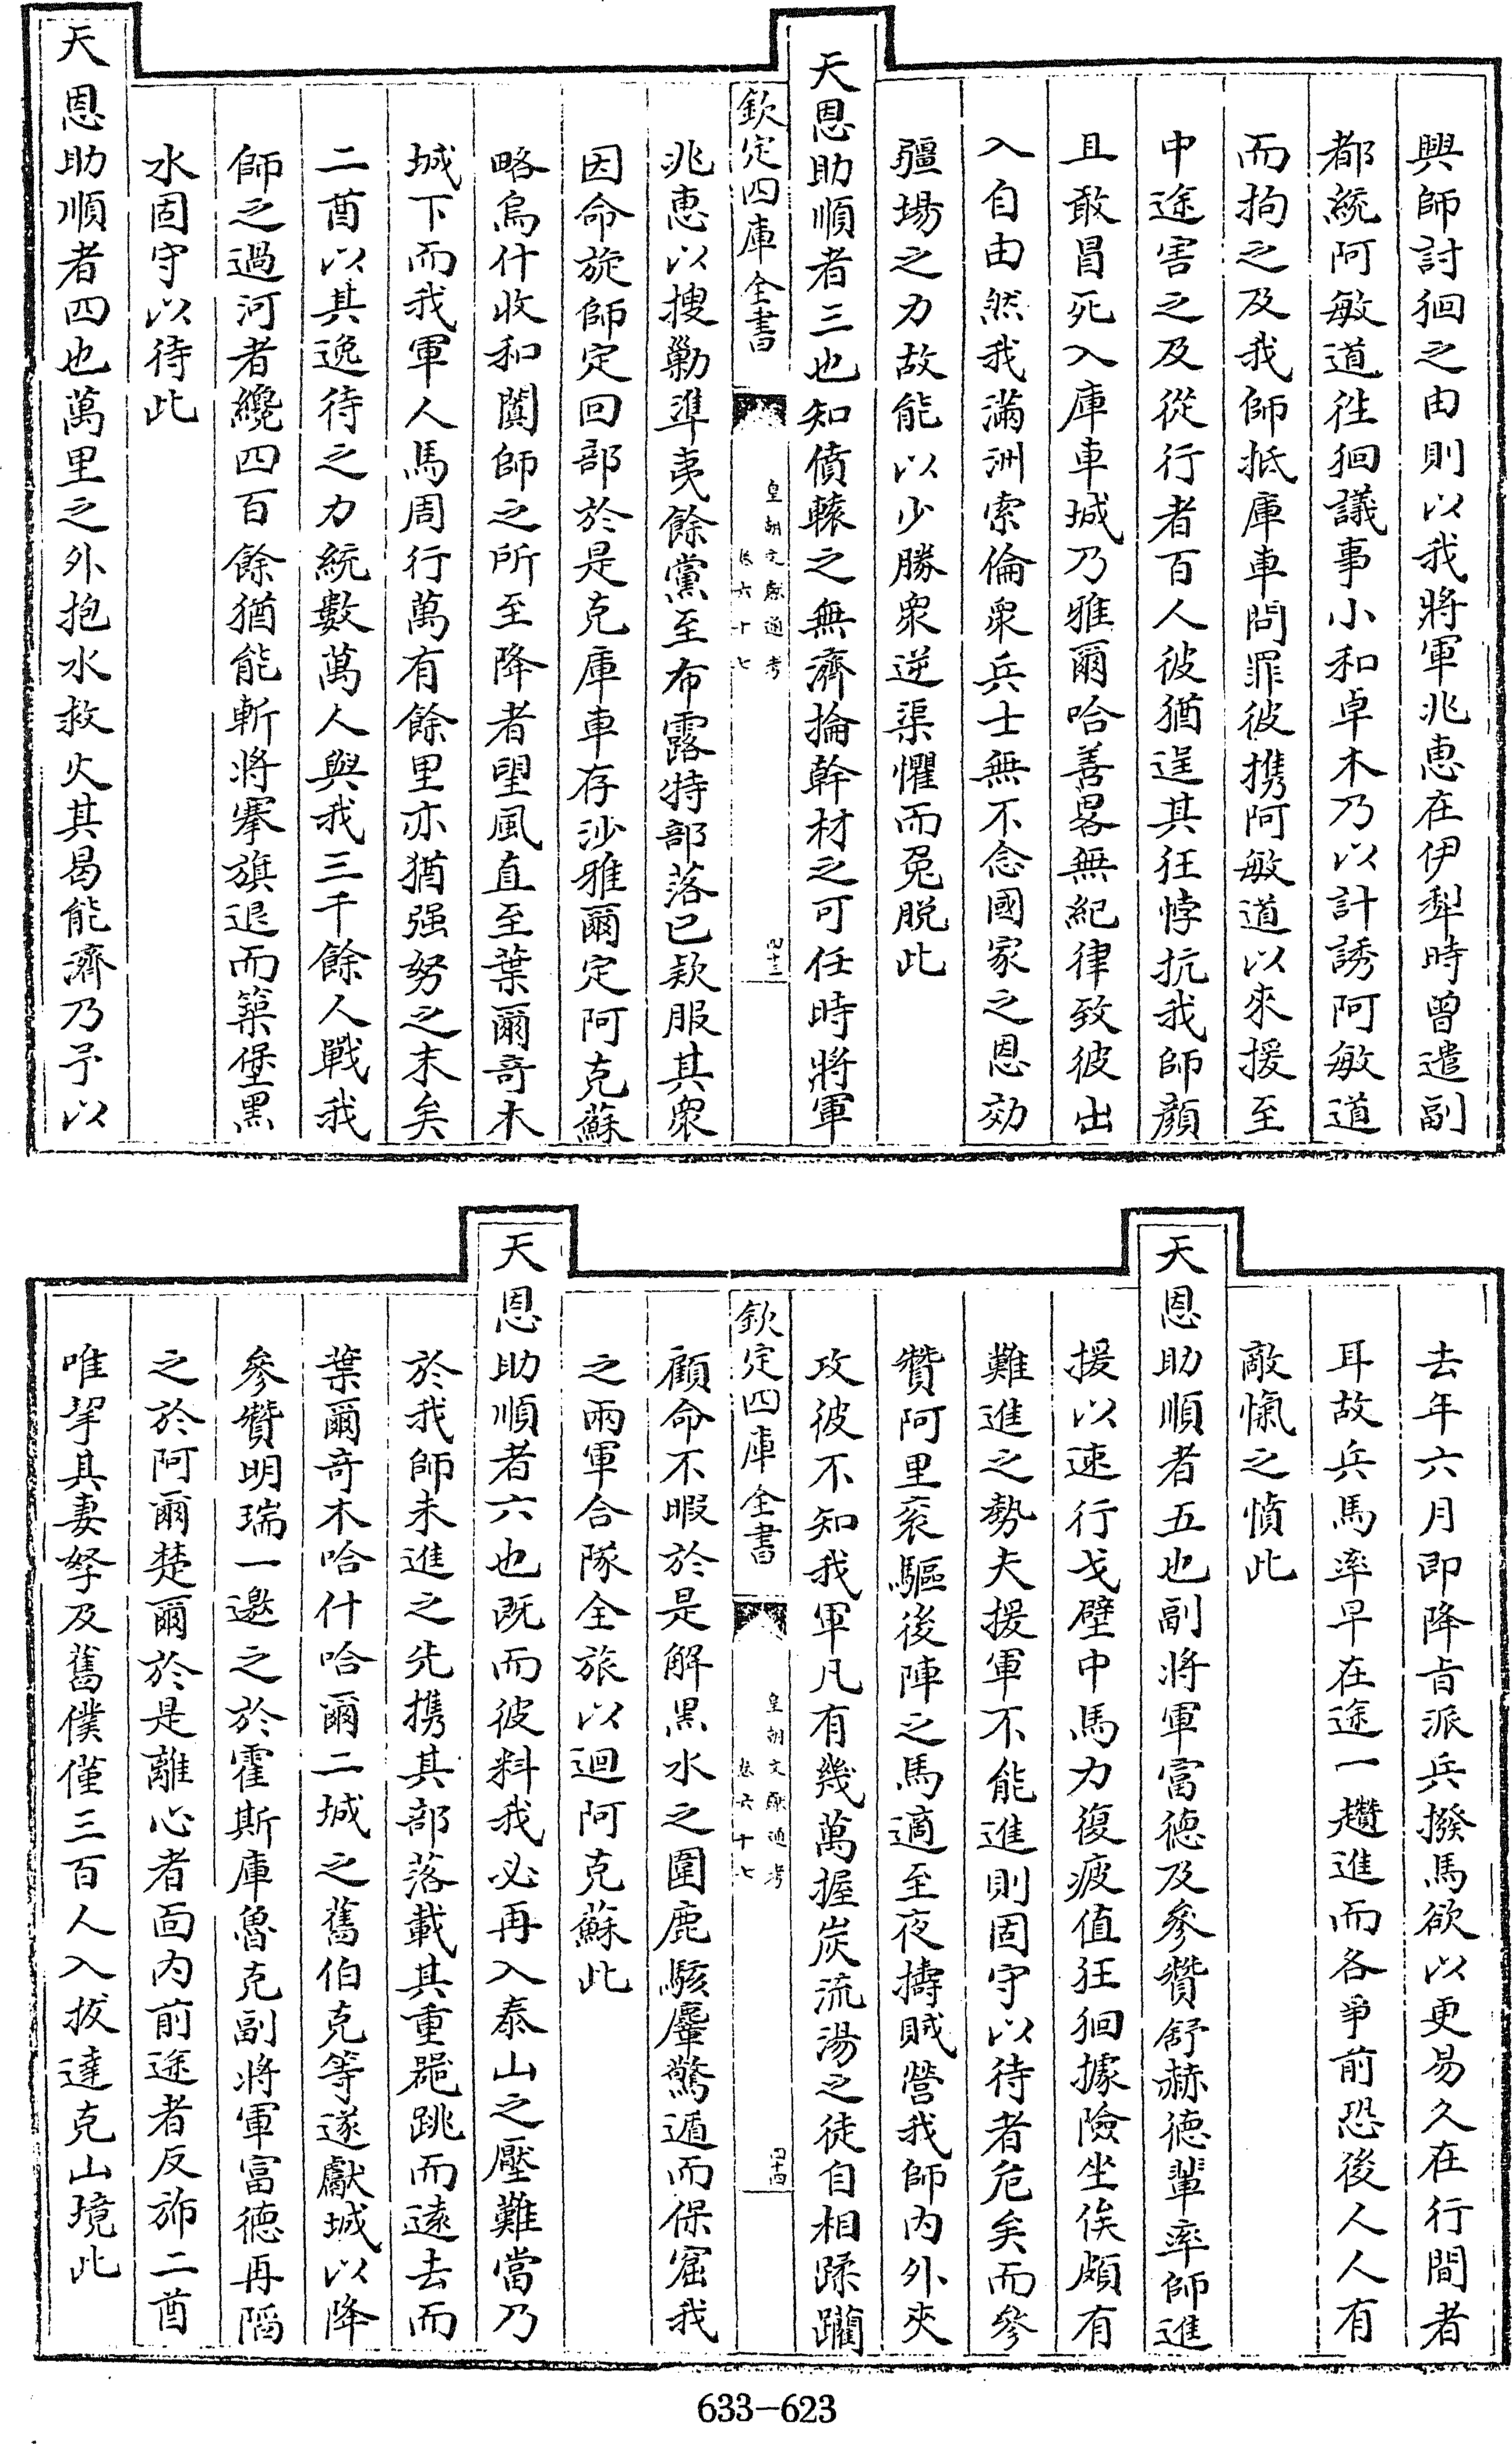 興師討徊之由則以我將軍兆惠在伊犁時曾遣副
都統阿敏道徃徊議事小和卓木乃以計誘阿敏道
而拘之及我師抵庫車問罪彼携阿敏道以來援至
中途害之及從行者百人彼猶逞其狂悖抗我師顔
且敢冒死入庫車城乃雅爾哈善畧無紀律致彼出
入自由然我滿洲索倫衆兵士無不念國家之恩効
疆場之力故能以少勝衆逆渠懼而兎脱此
天恩助順者三也知僨轅之無濟掄幹材之可任時將軍
欽定四庫全書
皇朝文獻通考
卷六十七
四十三
兆惠以搜勦凖夷餘黨至布露特部落已欵服其衆
因命旋師定回部於是克庫車存沙雅爾定阿克蘇
略烏什收和闐師之所至降者望風直至葉爾奇木
城下而我軍人馬周行萬有餘里亦猶强弩之末矣
二酋以其逸待之力統數萬人與我三千餘人戰我
師之過河者纔四百餘猶能斬將搴旗退而築堡黑
水固守以待此
天恩助順者四也萬里之外抱水救火其曷能濟乃予以
去年六月即降旨派兵撥馬欲以更易久在行間者
耳故兵馬率早在途一趲進而各爭前恐後人人有
敵愾之憤此
天恩助順者五也副將軍富德及參贊舒赫德輩率師進
援以速行戈壁中馬力復疲值狂徊據險坐俟頗有
難進之勢夫援軍不能進則固守以待者危矣而參
贊阿里衮驅後陣之馬適至夜擣賊營我師内外夾
攻彼不知我軍凡有幾萬握炭流湯之徒自相蹂躪
欽定四庫全書
皇朝文獻通考
卷六十七
四十四
顧命不暇於是解黑水之圍鹿駭麞驚遁而保窟我
之兩軍合隊全旅以迴阿克蘇此
天恩助順者六也既而彼料我必再入泰山之壓難當乃
於我師未進之先携其部落載其重噐跳而逺去而
葉爾竒木哈什哈爾二城之舊伯克等遂獻城以降
參贊明瑞一邀之於霍斯庫魯克副將軍富德再䧟
之於阿爾楚爾於是離心者面内前途者反斾二酋
唯挈其妻孥及舊僕僅三百人入拔達克山境此
633—623